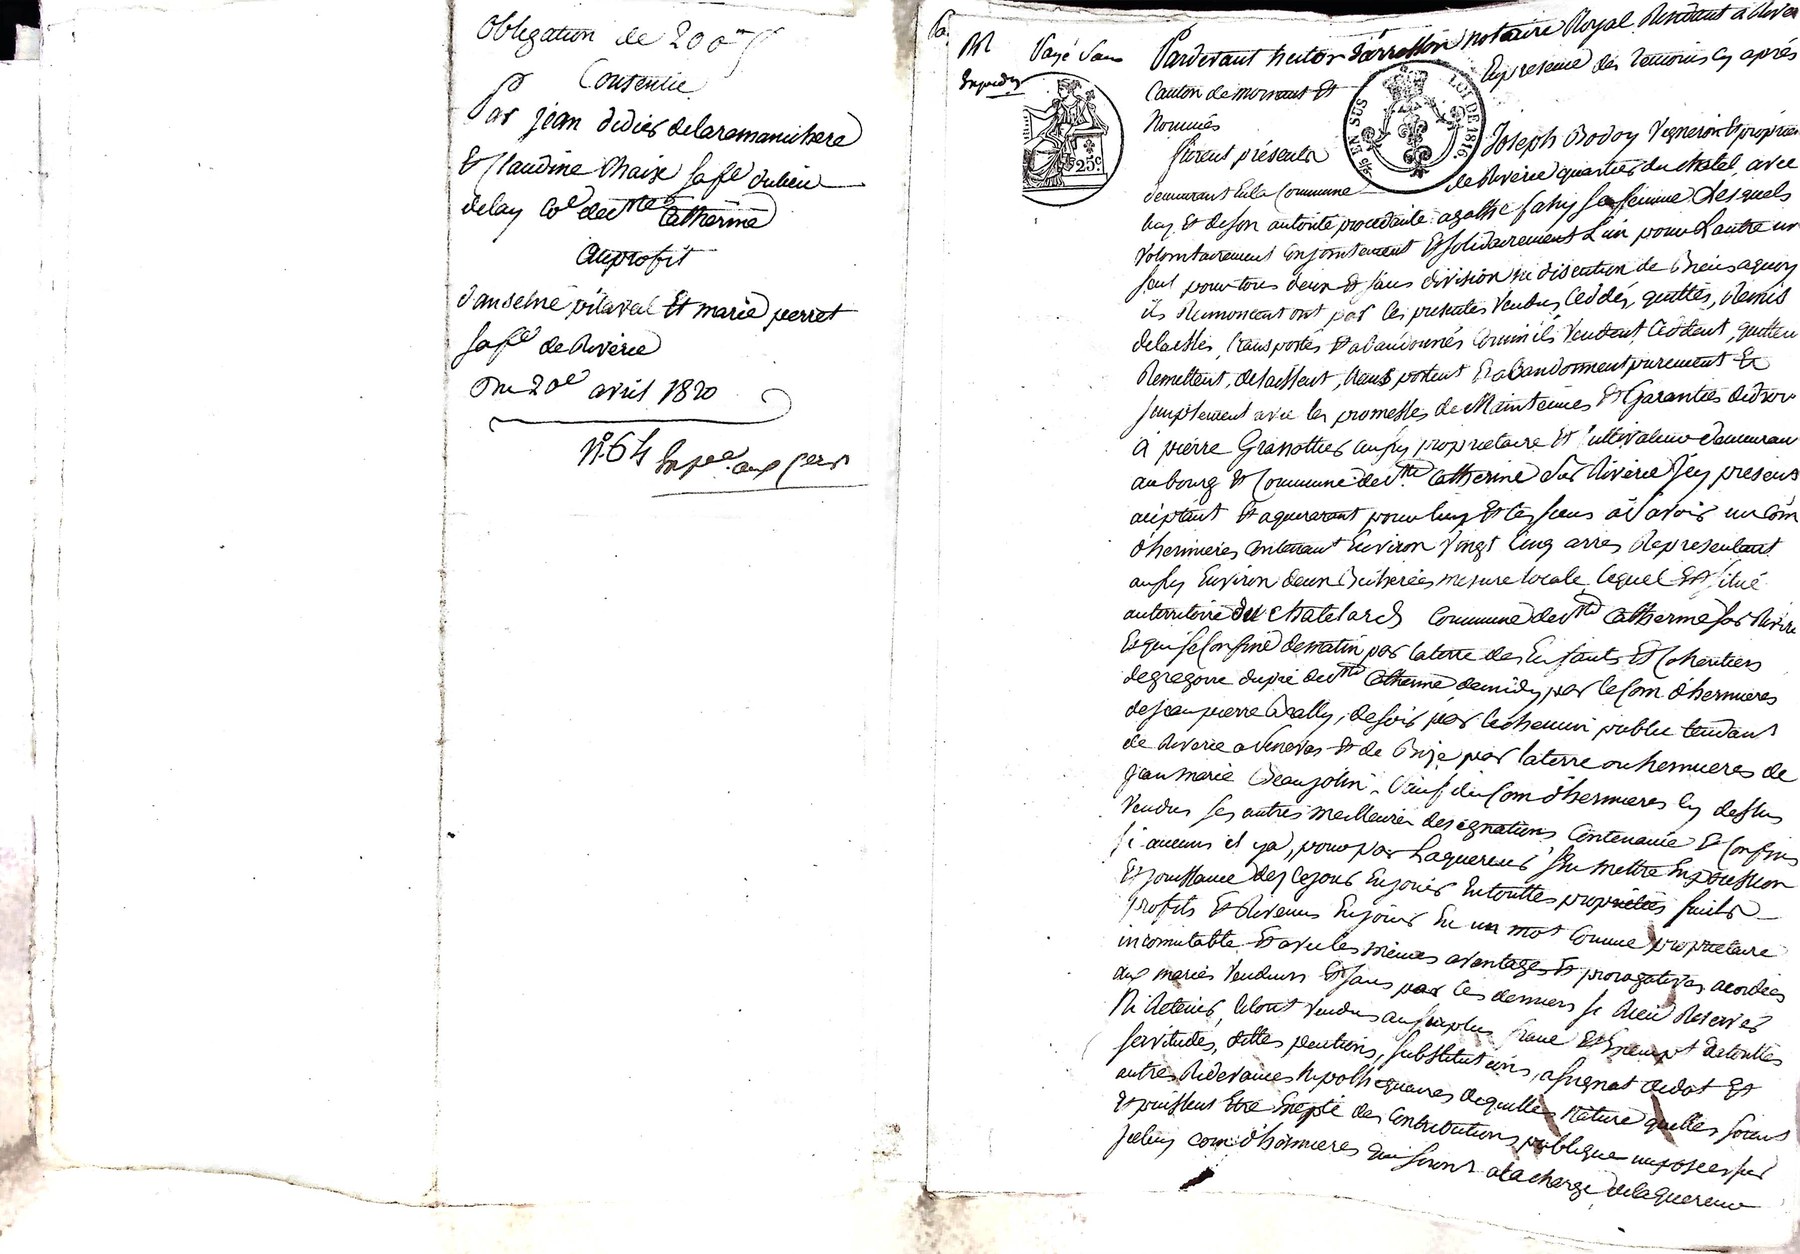 Obligation de 200 f
Consentie
Par jean didier delaramanichere
Et Claudine Chaize sa fe du lieu
delay Coe de Ste Catherine
Auprofit
d'anselme pilaval Et marie perret
sa fe de Riverie
Du 20e avril 1820
N° 64
Payé Sans
Pardevant hector notaire Royal Residant a River
Canton de mornant Et En presence des Temoins cy après
Nommés
25c.
EN SUS
LOI DE 1816.
furent présents Joseph Bodoy Vigneron Et proprie
demeurant En la Commune de Riverie quartier du chatel avec
luy Et de son autorité procedante agathe fahy sa femme Lesquels
Volontairement conjointement Et solidairement L'un pour L'autre un
seul pour tous deux Et sans division ni discution de Biens aquoy
ils Renoncent ont par les presentes Vendus, Ceddés, quittés, Remis
delaissés, transportés Et abandonnés Comm'ils Vendent, Ceddent, quittent
Remettent, delaissent, transportent Et abandonnent purement Et
simplement avec les promesses de Maintenües Et Garanties de droit
à pierre Granottier aussy proprietaire Et Cultivateur demeuran
au bourg Et Commune de Ste Catherine sur Riverie icy present
aceptant Et aquerarant pour luy Et les siens à savoir un Coin
d'hermieres Contenant Environ Vingt Cinq arres Representant
aussy Environ deux Bicherées mesure locale lequel Est situé
au territoire du Chatelard Commune de Ste Catherine sur Riverie
Et qui se Confine de matin par la terre des Enfants Et Coheritiers
de gregoire dupré de Ste Catherine de midy par le Coin d'hermieres
de jean pierre Bally, de soir par le chemin public tendant
de Riverie a Et de Bize par la terre ou hermieres de
jean marie Beaujolin. Sauf du Coin d'hermieres cy dessus
Vendus ses autres meilleures designations Contenance Et Confins
si aucuns il y a, pour par Laquereur s'en mettre En possession
Et jouissance dez ce jour En jouir En touttes proprietés fruits
profits Et Revenus En jouir En un mot Comme proprietaire
incomutable Et avec les mêmes avantages Et prerogatives acordées
aux mariés Vendeurs Et sans par ces derniers se Rien Reserver
Ni Retenir, Le tout Vendus au surplus franc Et Exempt de touttes
servitudes, dettes pentions, substitutions, assignat de dot Et
autres Redevances hypothequaires de quelles Nature quelles soient
Et puissent Etre Excepté des Contributions publique imposées sur
le Coin d'hermieres qui seront a la charge de laquereur